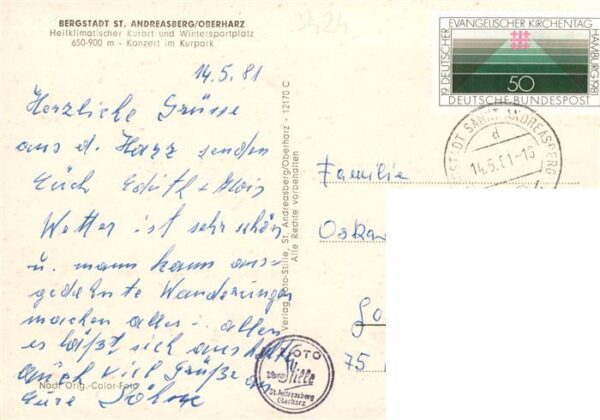 BERGSTADT ST. ANDREASBERG/OBERHARZ
Heilklimatischer Kurort und Wintersportplatz
650-900 m - Konzert im Kurpark
14.5.81
Herzliche Grüsse
aus d. Harz senden
Euch Edith + Alois
Wetter ist sehr schön
u. mann kann aus-
gedehnte Wanderungen
machen alles i. allen
es läßt sich aushalten
auch viel Grüße an
Eure Söhne
Nach Orig.-Color-Foto
Verlag Foto-Stille, St. Andreasberg/Oberharz - 12170 C
Alle Rechte vorbehalten
FOTO
Stille
St. Andreasberg
Oberharz
3424
19. DEUTSCHER EVANGELISCHER KIRCHENTAG HAMBURG 1981
50
DEUTSCHE BUNDESPOST
BERGSTADT SANKT ANDREASBERG
d
14.5.81-16
Familie
Oska
75